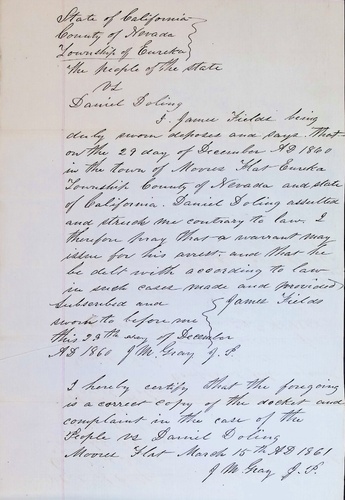 State of California
County of Nevada
Township of Eureka
The people of the state
vs
Daniel Doling
I. James Fields being
duly sworn deposes and says. that
on the 29 day of December AD 1860
in the town of Moores Flat Eureka
Township County of Nevada and state
of California. Daniel Doling assulted
and struck me contrary to law. I
therefore pray that a warrant may
issue for his arrest. and that he
be delt with according to law
in such cases made and provided
Subscribed and James Fields
sworn to before me
this 29th day of December
AD 1860 J M. Gray J. P.
I hereby certify that the foregoing
is a correct copy of the docket and
complaint in the case of the
People vs Daniel Doling
Moores Flat March 15th AD 1861
J M Gray J. P.